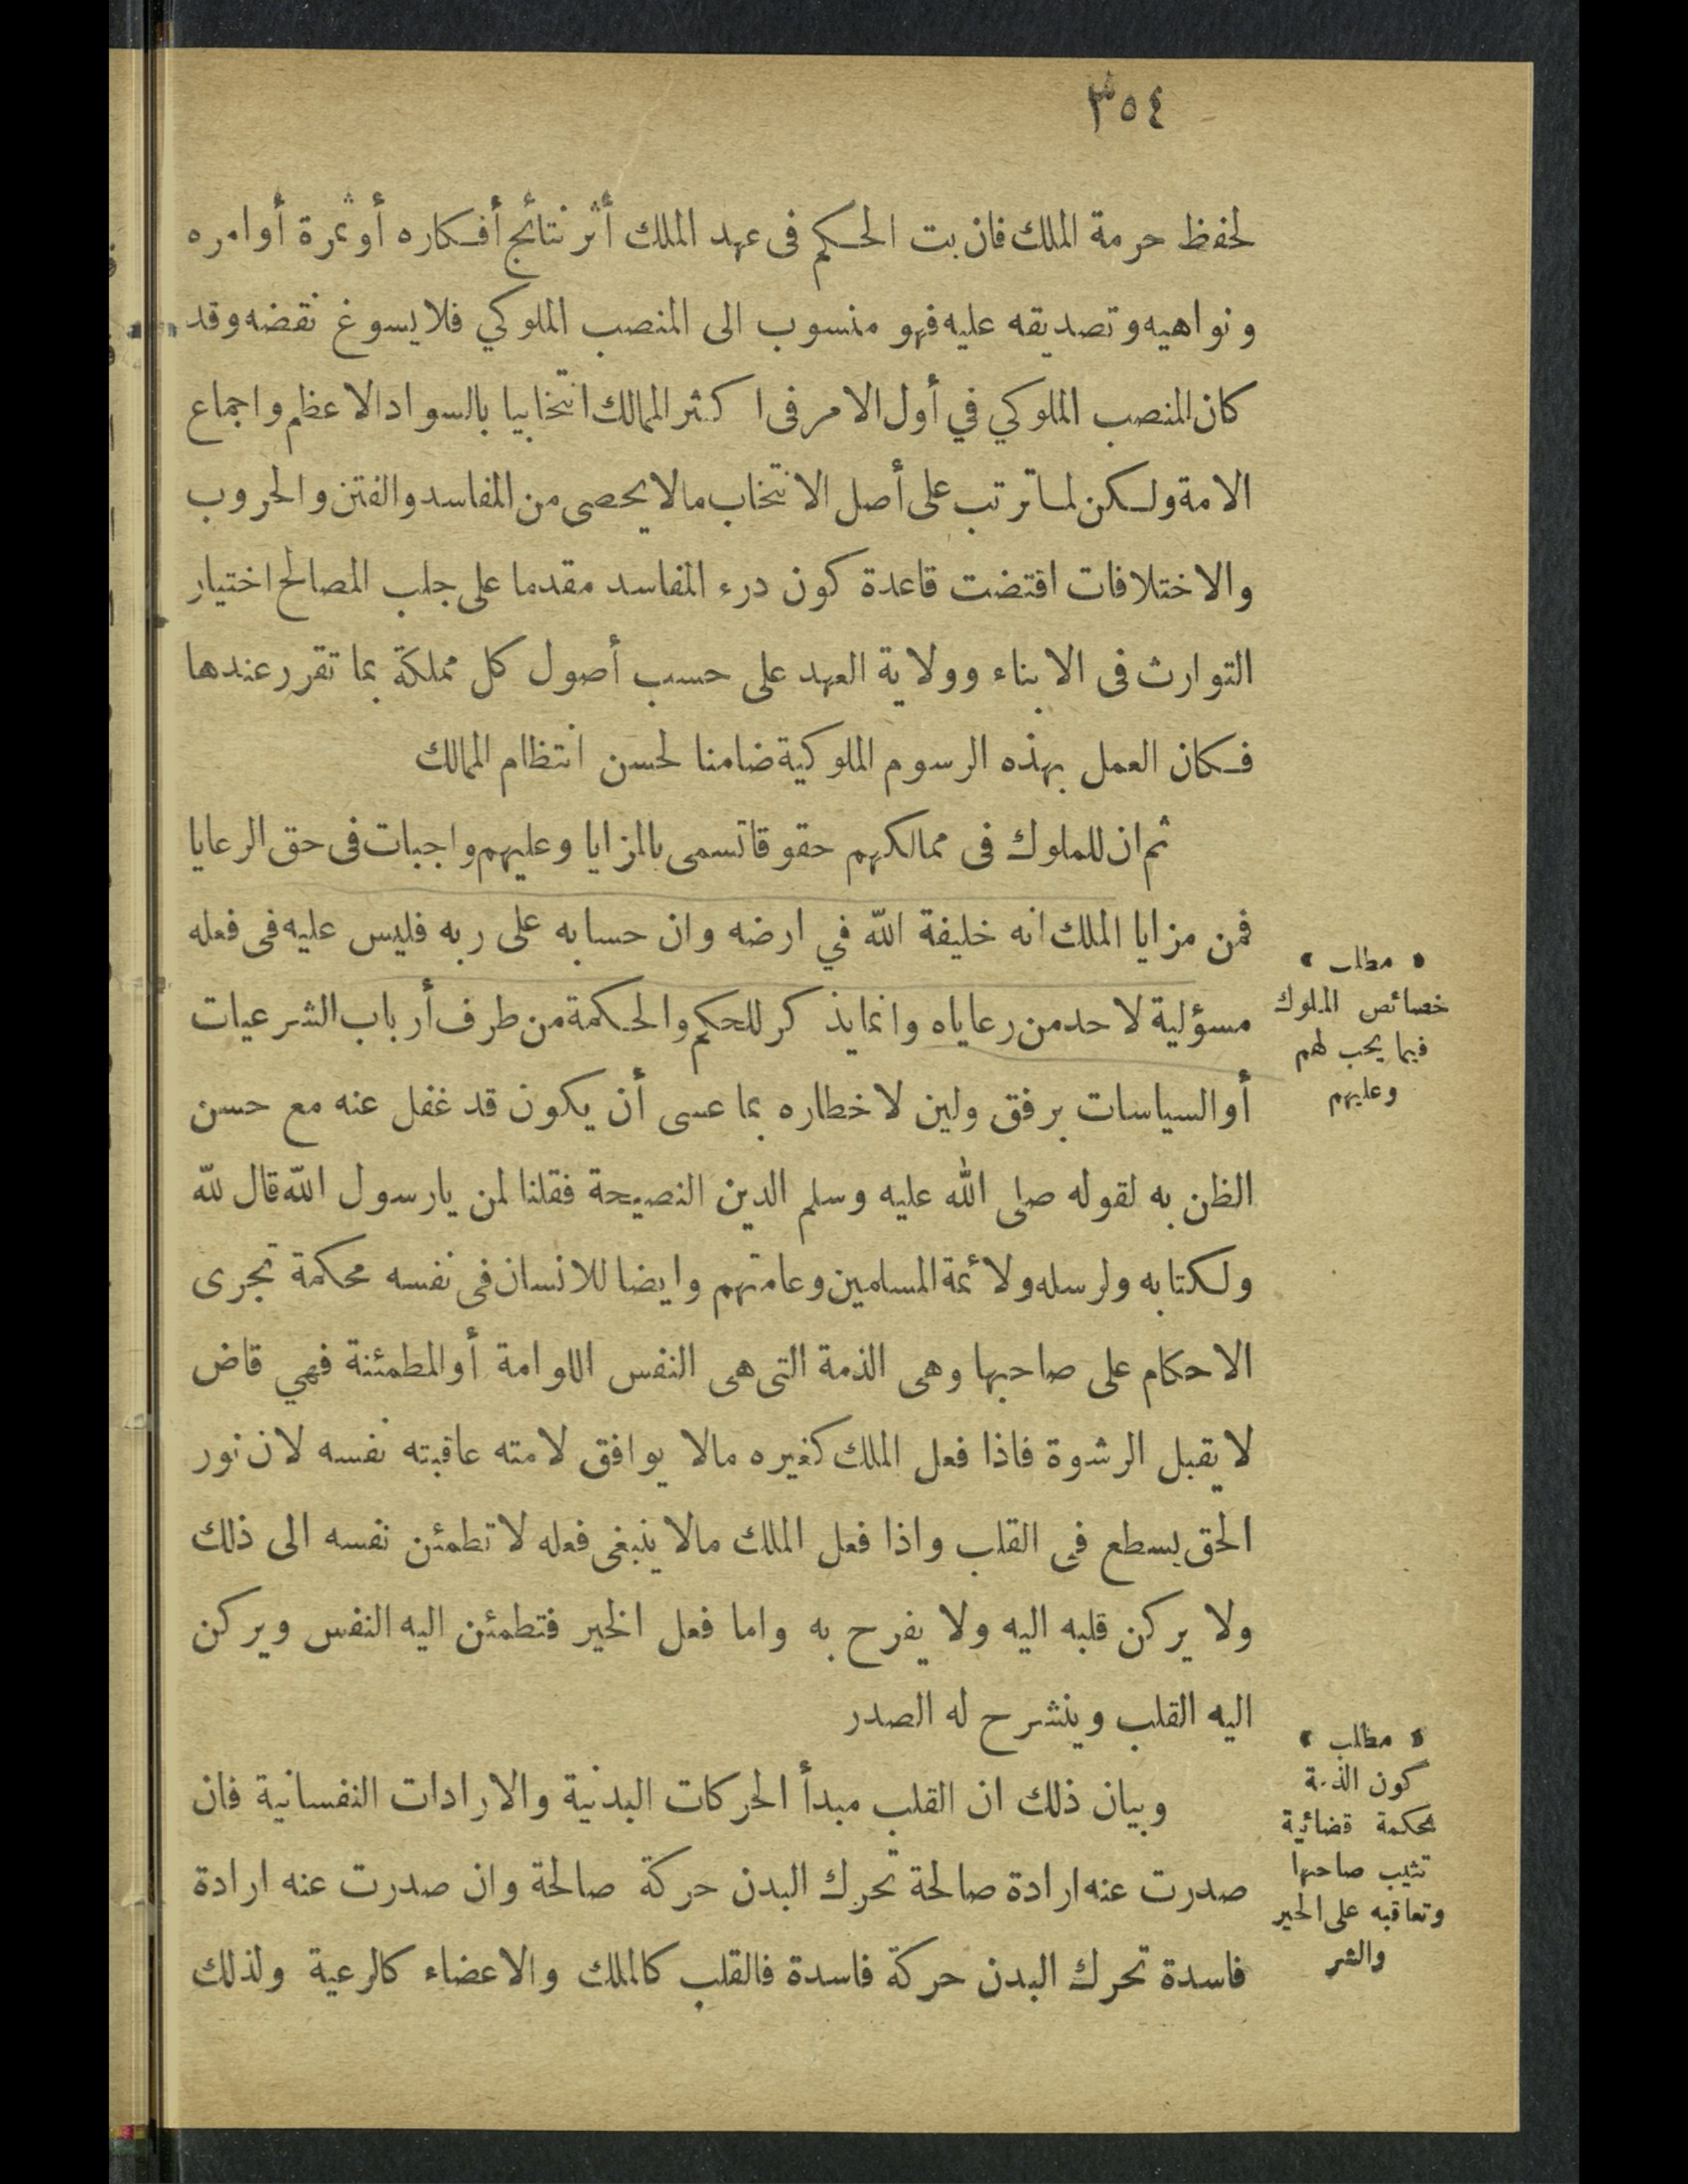 ٣٥٤
لحفظ حرمة الملك فان بت الحكم فى عهد الملك أثر نتائج أفكاره أو ثمرة أوامره
ونواهيه وتصديقه عليه فهو منسوب الى المنصب الملوكي فلا يسوغ نقضه وقد
كان المنصب الملوكي في أول الامر فى اكثر الممالك انتخابيا بالسواد الاعظم واجماع
الامة ولكن لما ترتب على أصل الانتخاب مالا يحصى من المفاسد والفتن والحروب
والاختلافات اقتضت قاعدة كون درء المفاسد مقدما على جلب المصالح اختيار
التوارث فى الابناء وولاية العهد على حسب أصول كل مملكة بما تقرر عندها
فكان العمل بهذه الرسوم الملوكية ضامنا لحسن انتظام الممالك
ثم ان للملوك فى ممالكهم حقوقا تسمى بالمزايا وعليهم واجبات فى حق الرعايا
فمن مزايا الملك انه خليفة الله في ارضه وان حسابه على ربه فليس عليه فى فعله
« مطلب »
خصائص الملوك
فيما يجب لهم
وعليهم
مسؤلية لاحد من رعاياه وانما يذكر للحكم والحكمة من طرف أرباب الشرعيات
أو السياسات برفق ولين لاخطاره بما عسى أن يكون قد غفل عنه مع حسن
الظن به لقوله صلى الله عليه وسلم الدين النصيحة فقلنا لمن يارسول الله قال لله
ولكتابه ولرسله ولائمة المسلمين وعامتهم وايضا للانسان فى نفسه محكمة تجرى
الاحكام على صاحبها وهى الذمة التى هى النفس اللوامة أو المطمئنة فهي قاض
لا يقبل الرشوة فاذا فعل الملك كغيره مالا يوافق لامته عاقبته نفسه لان نور
الحق يسطع فى القلب واذا فعل الملك مالا ينبغى فعله لا تطمئن نفسه الى ذلك
ولا يركن قلبه اليه ولا يفرح به واما فعل الخير فتطمئن اليه النفس ويركن
اليه القلب وينشرح له الصدر
« مطلب »
كون الذمة
محكمة قضائية
تثيب صاحبها
وتعاقبه على الخير
والشر
وبيان ذلك ان القلب مبدأ الحركات البدنية والارادات النفسانية فان
صدرت عنه ارادة صالحة تحرك البدن حركة صالحة وان صدرت عنه ارادة
فاسدة تحرك البدن حركة فاسدة فالقلب كالملك والاعضاء كالرعية ولذلك